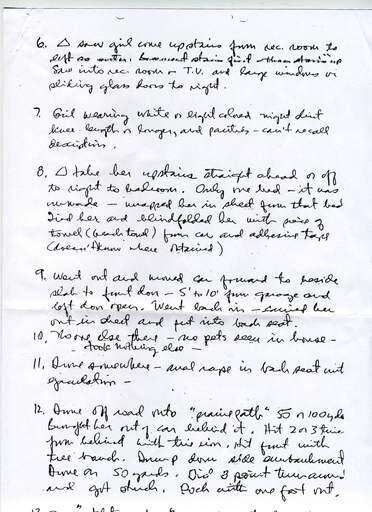 6. Δ saw girl come upstairs from rec. room to
left as enter, basement stairs first then stairs up
See into rec. room – T.V. and large windows or
sliding glass doors to right.
7. Girl wearing white or light colored night shirt
knee length or longer, and panties – can't recall
description.
8. Δ take her upstairs straight ahead or off
to right to bedroom. Only one bed – it was
unmade – wrapped her in sheet from that bed
Tied her and blindfolded her with piece of
towel (beach towel) from car and adhesive tape
(doesn't know where obtained)
9. Went out and moved car forward to beside
slab to front door – 5' to 10' from garage and
left door open. Went back in – carried her
out in sheet and put into back seat.
10. No one else there – no pets seen in house –
– took nothing else –
11. Drove somewhere – anal rape in back seat
ejaculation –
12. Drove off road onto "prairie path" 50 or 100 yds
brought her out of car behind it. Hit 2 or 3 times
from behind with tire iron, hit front with
tree branch. Dump down side embankment
Drove on 50 yards. Did 3 point turnaround
and got stuck. Push with one foot out.